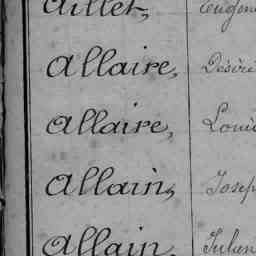 Aillet, Eugène
Allaire, Désiré
Allaire, Louis
Allain, Joseph
Allain, Julien